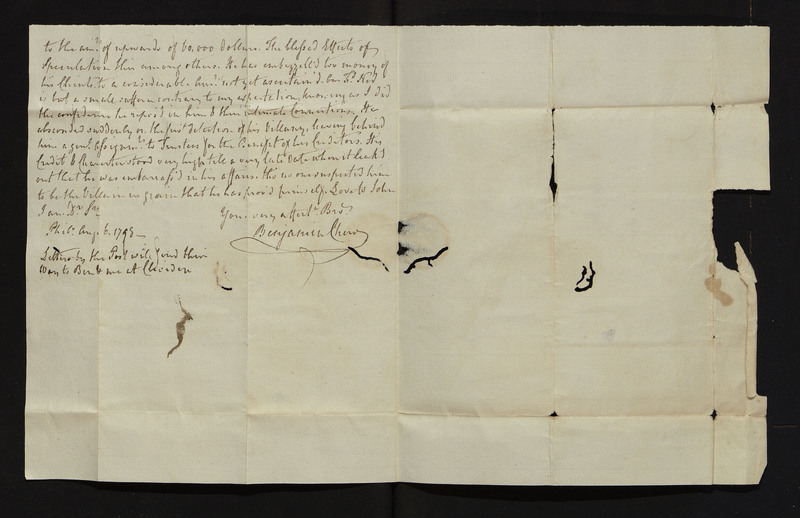 to the amt. of upwards of 60,000 Dollars. The blessed Effects of
Speculation this among others. He has embezzel'd too money of
his Clients to a considerable amt. not yet ascertain'd. 
is but a small sufferer contrary to my expectation, knowing as I did
the confidence he repos'd in him & their intimate Connections. He
absconded suddenly on the first detection of his Villainy, leaving behind
him a genl. Assignmt. to Trustees for the Benefit of his Creditors. His
Credit & Character stood very high till a very late Date when it leak'd
out that he was embarrass'd in his affairs. tho no one suspected him
to be the Villain in grain that he has prov'd himself. Love to John
I am Dr. Sir
Your very affect. Bror.
Benjamin Chew
Phila. Aug. 6. 1798
Letters by the Post will find their
way to Ben & me at Cliveden